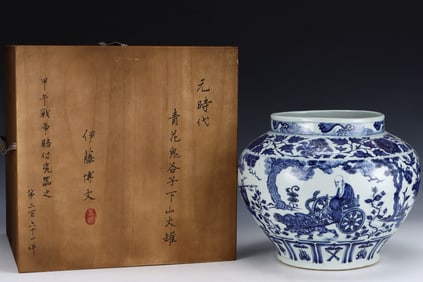 元時代
青花鬼谷子下山大罐
伊藤博文
甲午戰爭賠付瓷器之
第二百六十一件